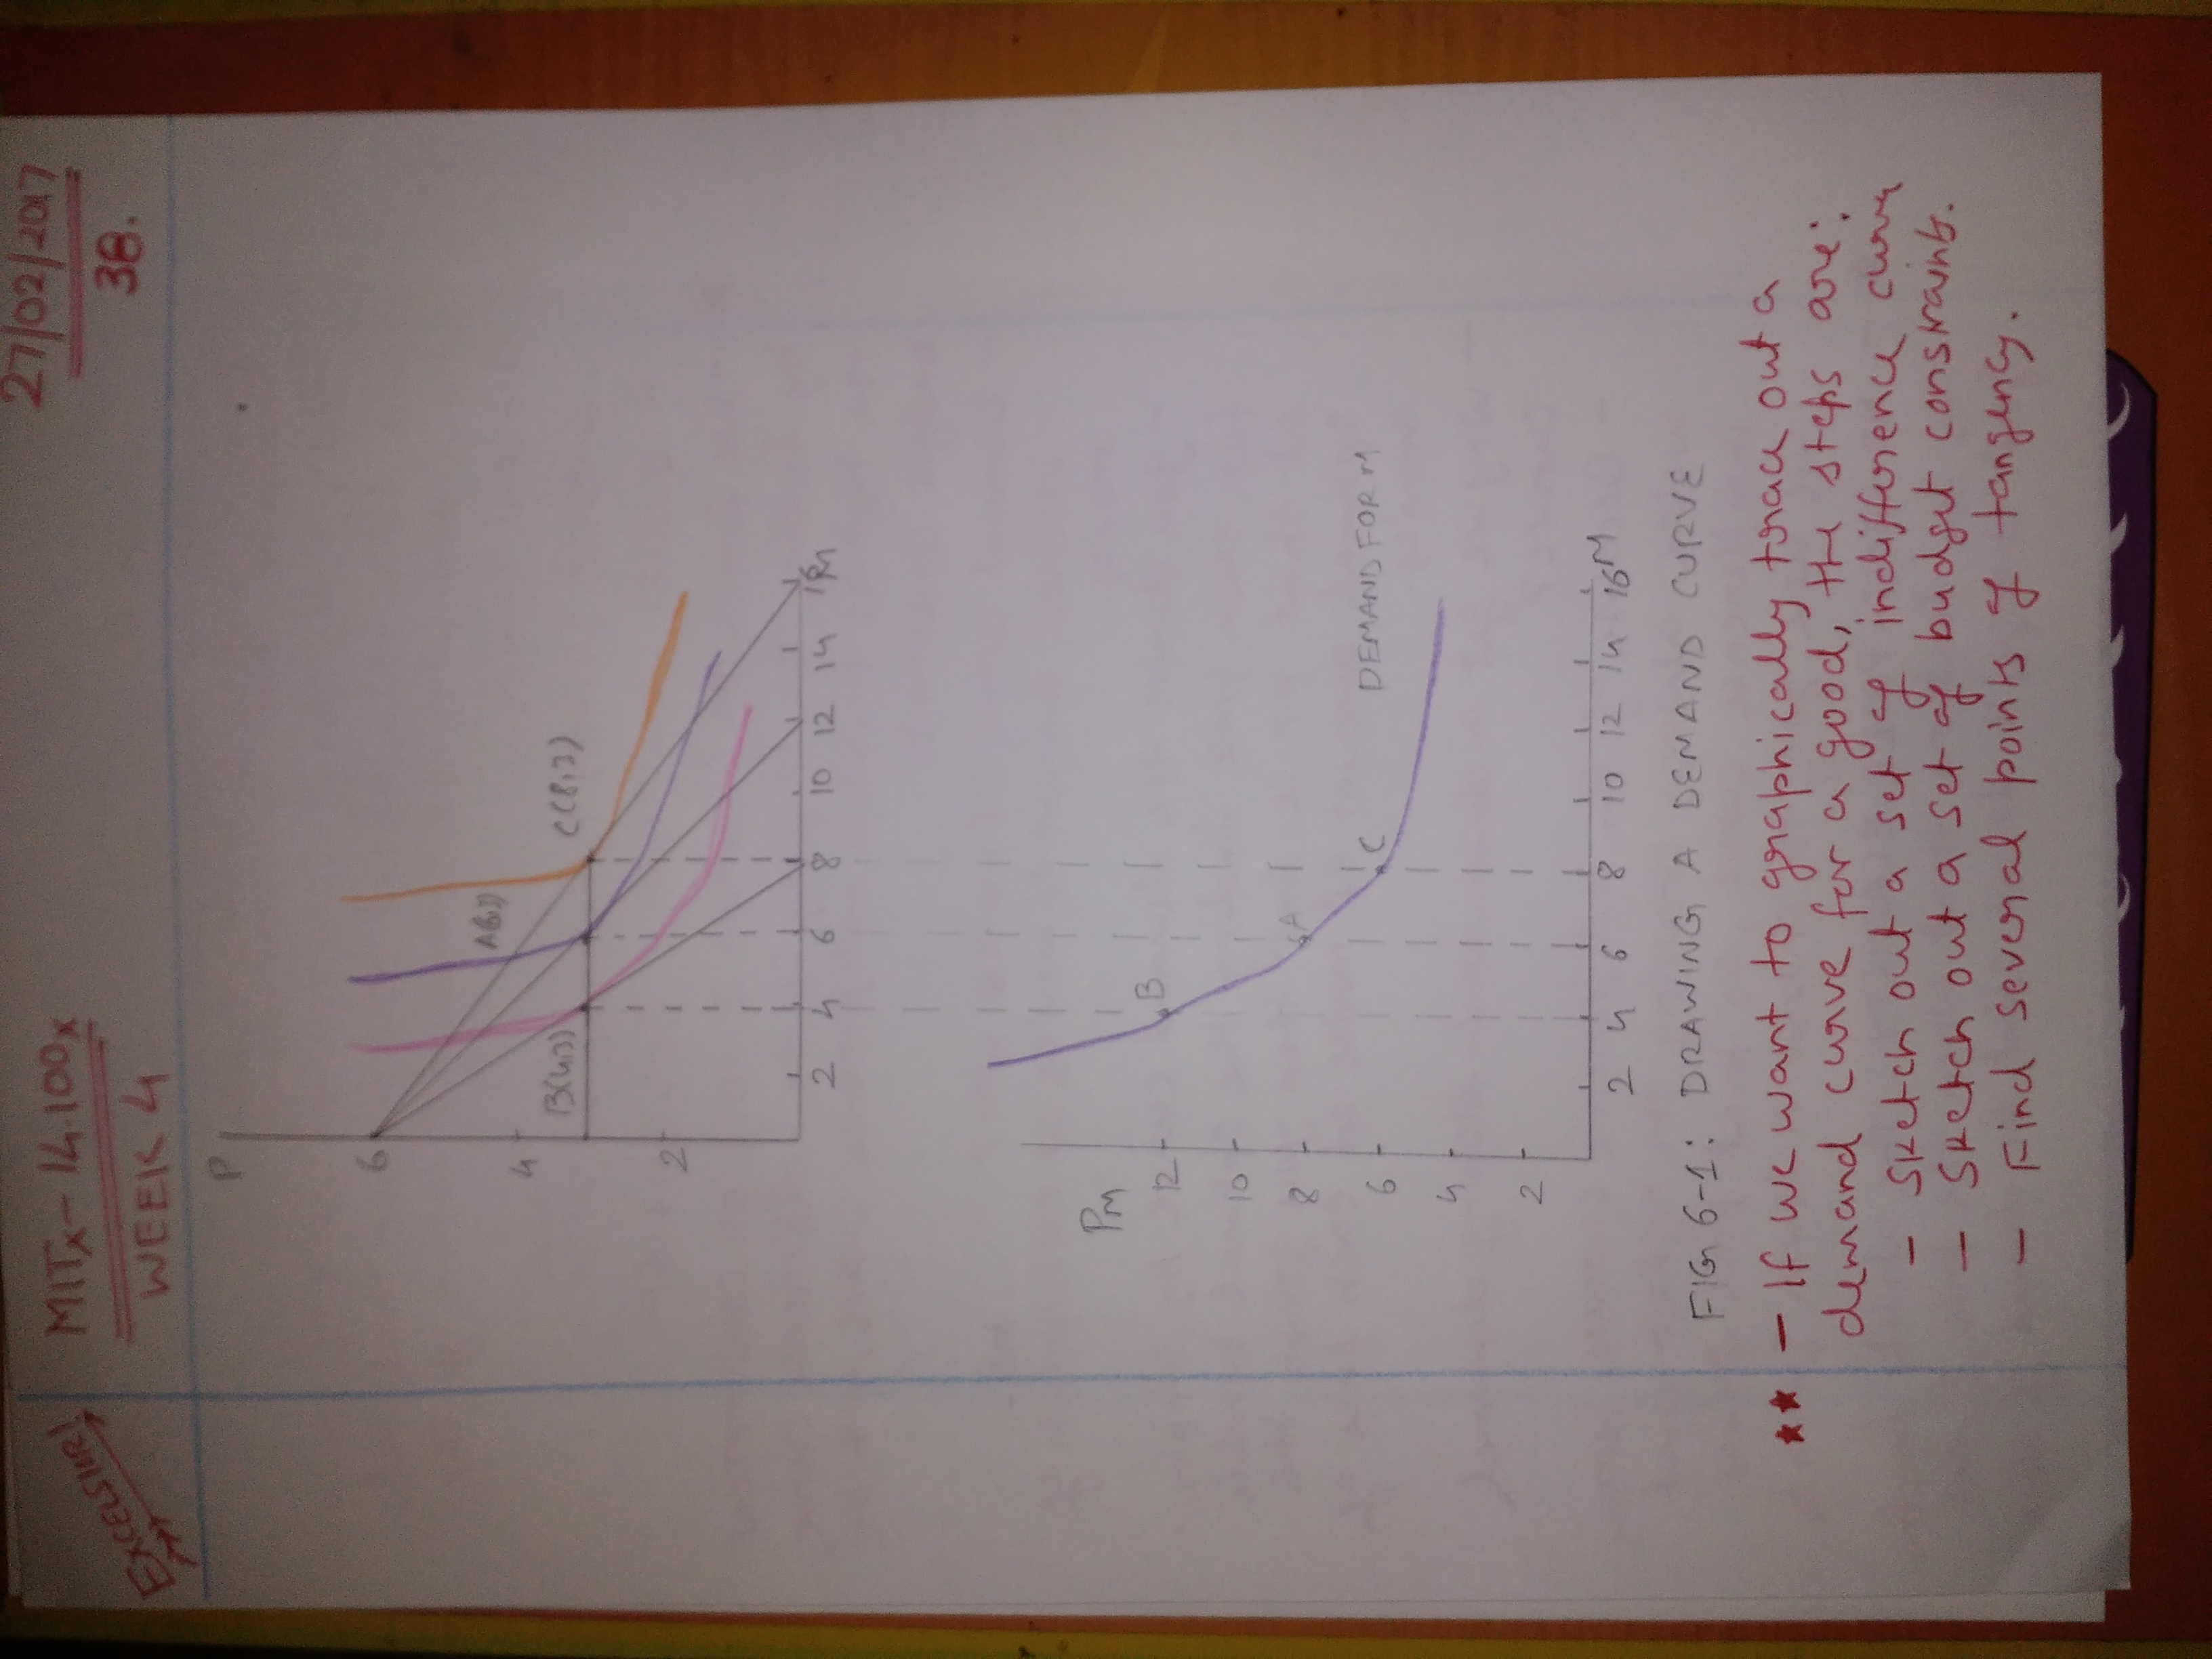 EXCELSIOR!
MITx-14.100x
WEEK 4
27/02/2017
38.
P
6
4
2
A(6,3)
B(4,3)
C(8,3)
2 4 6 8 10 12 14 16 M
PM
12
10
8
6
4
2
B
A
C
DEMAND FOR M
2 4 6 8 10 12 14 16 M
FIG 6-1: DRAWING A DEMAND CURVE
★★ - If we want to graphically trace out a
demand curve for a good, the steps are:
- Sketch out a set of indifference curve
- Sketch out a set of budget constraints.
- Find several points of tangency.